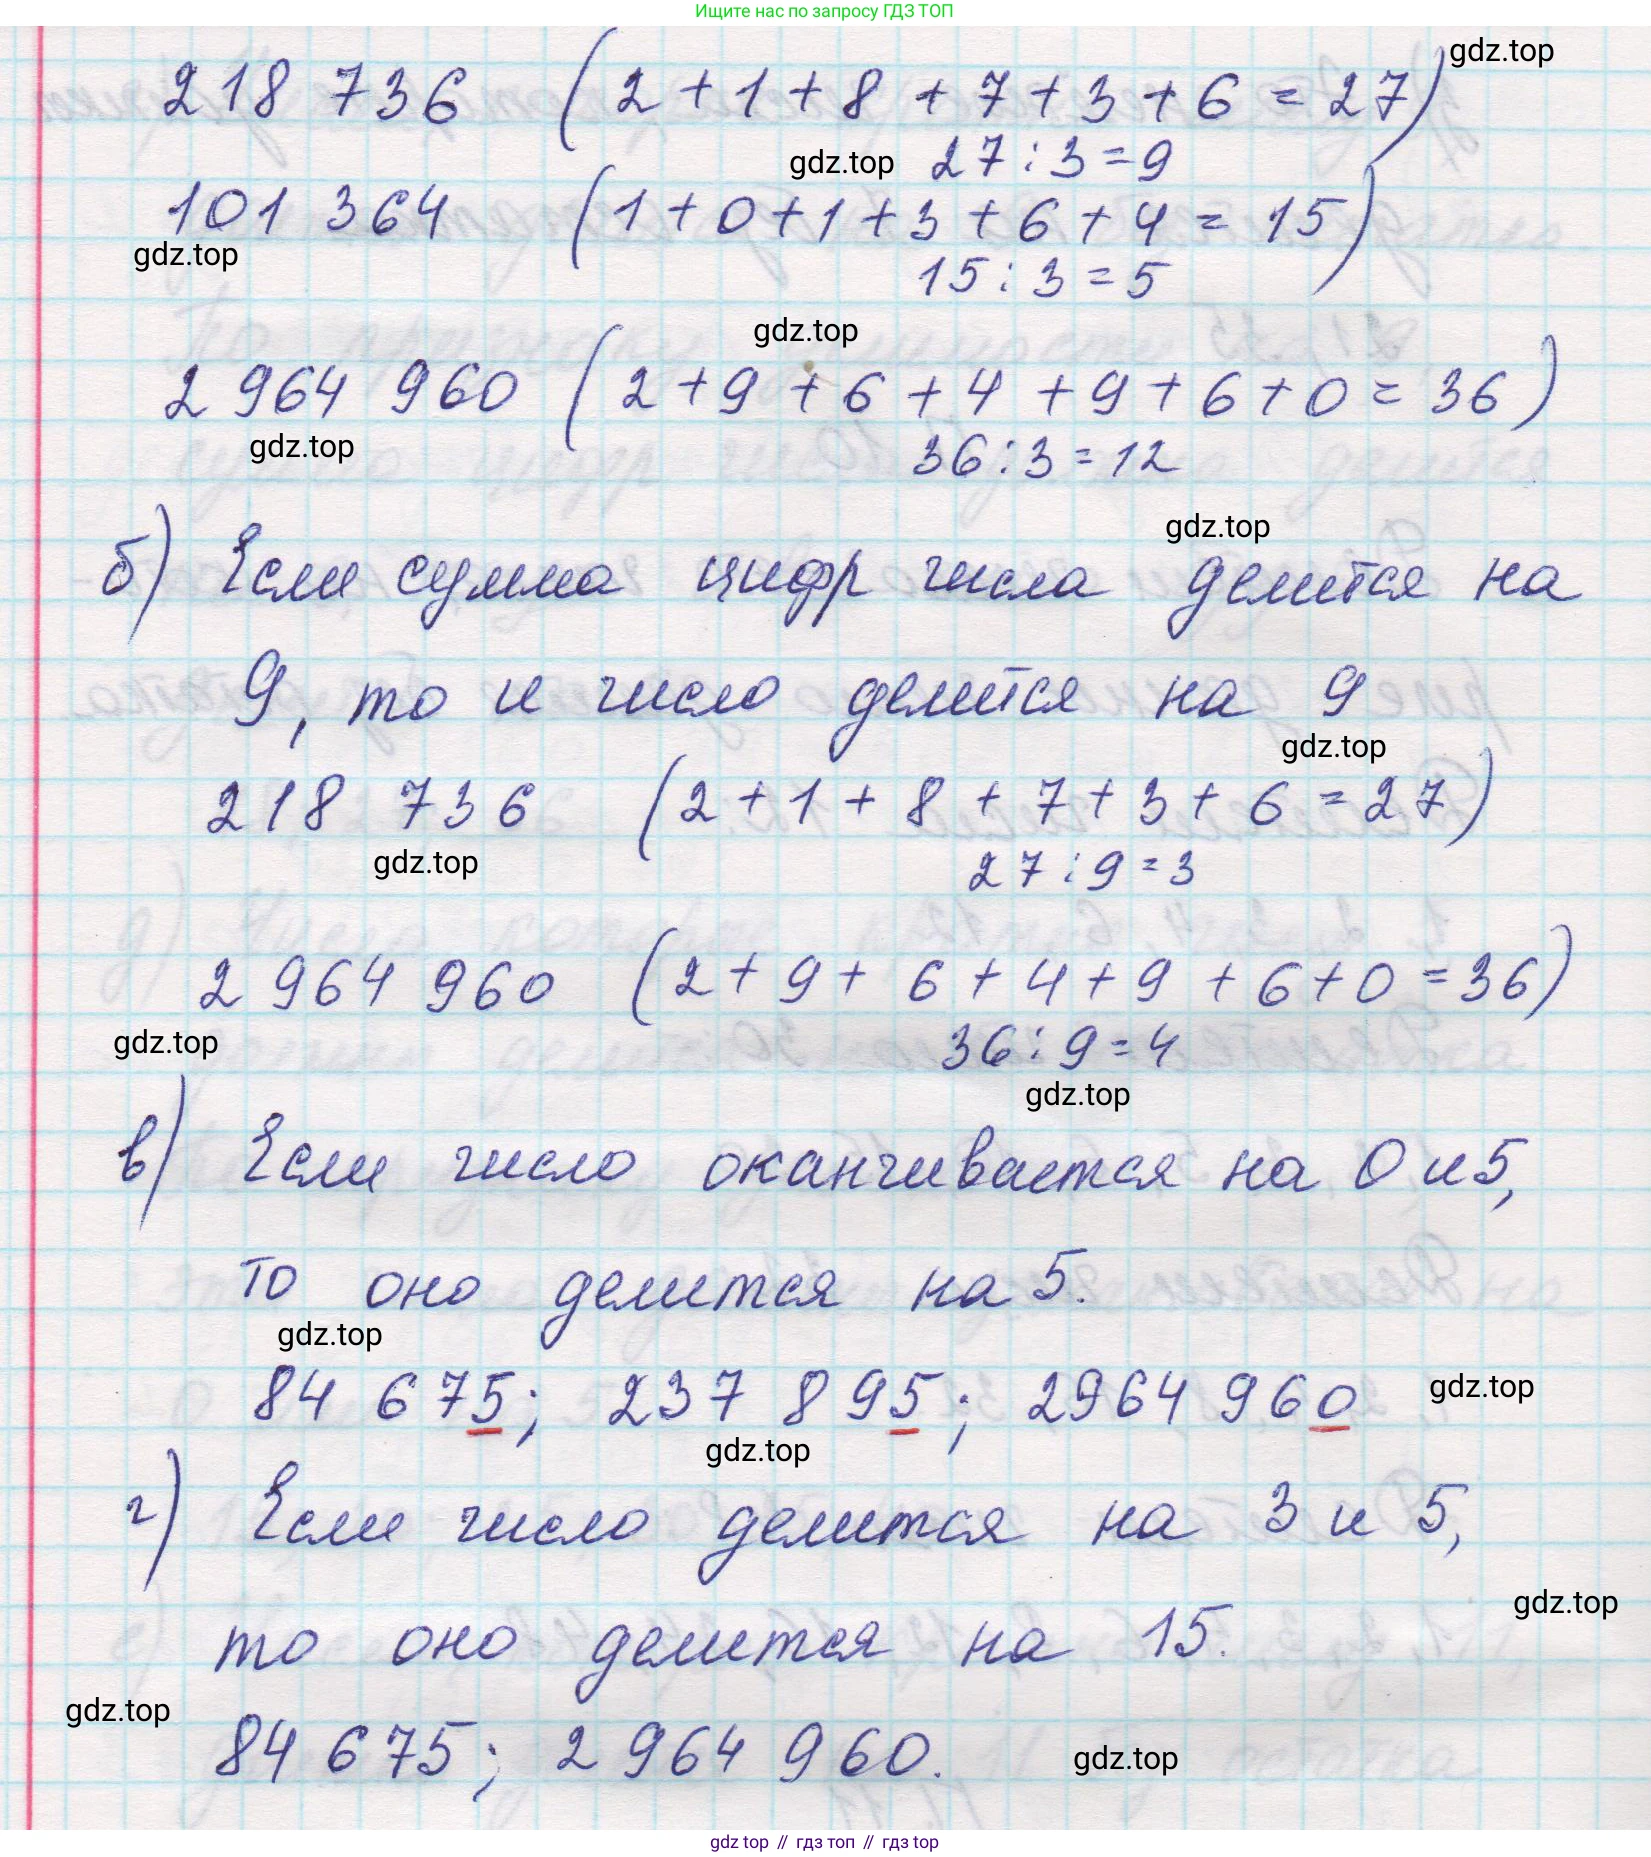 Ищите нас по запросу ГДЗ ТОП
gdz.top
218 736 (2+1+8+7+3+6=27)
gdz.top 27:3=9
101 364 (1+0+1+3+6+4=15)
gdz.top
15:3=5
gdz.top
2 964 960 (2+9+6+4+9+6+0=36)
gdz.top
36:3=12
gdz.top
б) Если сумма цифр числа делится на
9, то и число делится на 9
gdz.top
218 736 (2+1+8+7+3+6=27)
gdz.top
27:9=3
2 964 960 (2+9+6+4+9+6+0=36)
gdz.top
36:9=4
gdz.top
в) Если число оканчивается на 0 и 5,
то оно делится на 5.
gdz.top
84 675; 237 895; 2964 960
gdz.top
gdz.top
г) Если число делится на 3 и 5,
gdz.top
то оно делится на 15.
gdz.top
84 675; 2 964 960.
gdz.top
gdz top // гдз топ // гдз top